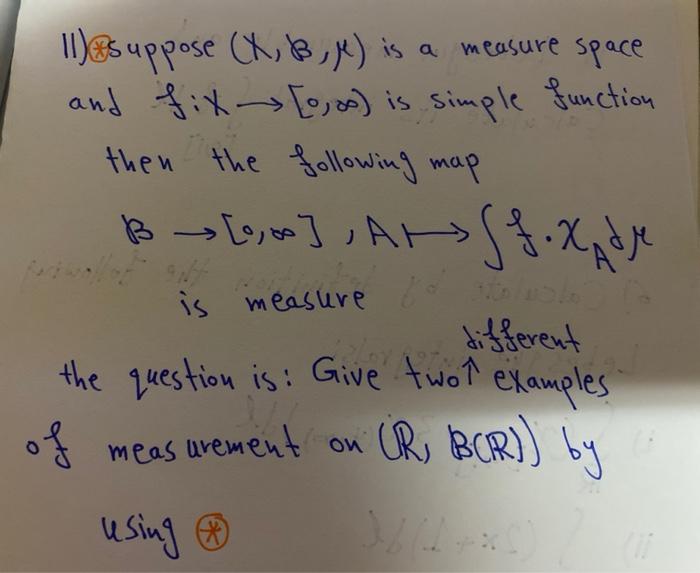 11) *suppose (X, B, μ) is a measure space
and f: X → [0,∞) is simple function
then the following map
B → [0,∞] , A ↦ ∫ f · χ_A dμ
is measure
different
the question is: Give two↑ examples
of measurement on (R, B(R)) by
using *